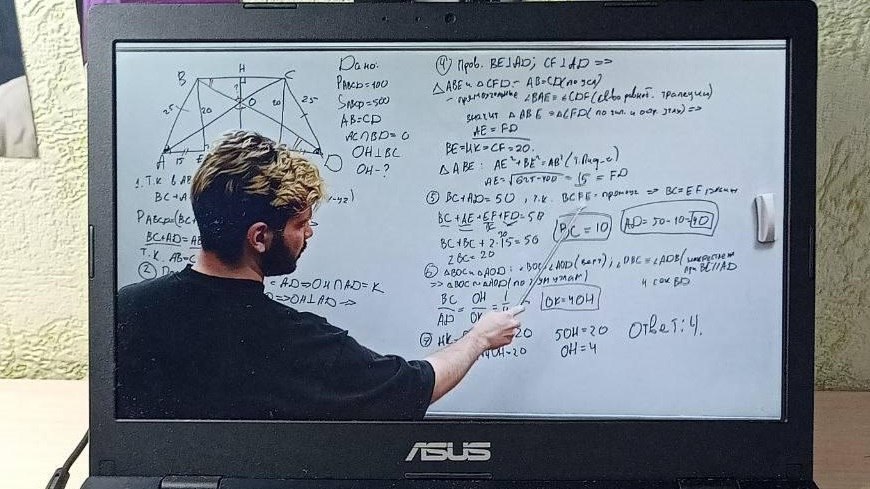 B H C
?
25 20 O 20 25
A 15 E D
Дано:
PABCD=100
SABCD=500
AB=CD
AC∩BD=O
OH⊥BC
OH-?
1. т.к в
BC+A
PABCD=(BC+
BC+AD=AB
т.к. AB=C
②
=AD⇒OH∩AD=K
⇒OH⊥AD⇒
④ Пров. BE⊥AD; CF⊥AD ⇒
△ABE и △CFD - AB=CD(по усл)
- прямоугольные ∠BAE=∠CDF(св-во равноб. трапеции)
значит △ABE=△CFD(по гип. и остр. углу)⇒
AE=FD
BE=HK=CF=20.
△ABE: AE²+BE²=AB²(т.Пиф-а)
AE=√625-400=15=FD
⑤ BC+AD=50, т.к. BCFE-прямоуг ⇒ BC=EF
BC+AE+EF+FD=50
BC+BC+2·15=50
2BC=20
BC=10
AD=50-10=40
⑥ △BOC и △AOD: ∠BOC=∠AOD(верт), ∠DBC=∠ADB(накрест леж
при BC∥AD
и сек BD)
⇒ △BOC∾△AOD(по 2-м углам)
BC/AD=OH/OK=1/4
OK=4OH
⑦ HK=
20 5OH=20
4OH=20 OH=4
Ответ:4.
ASUS